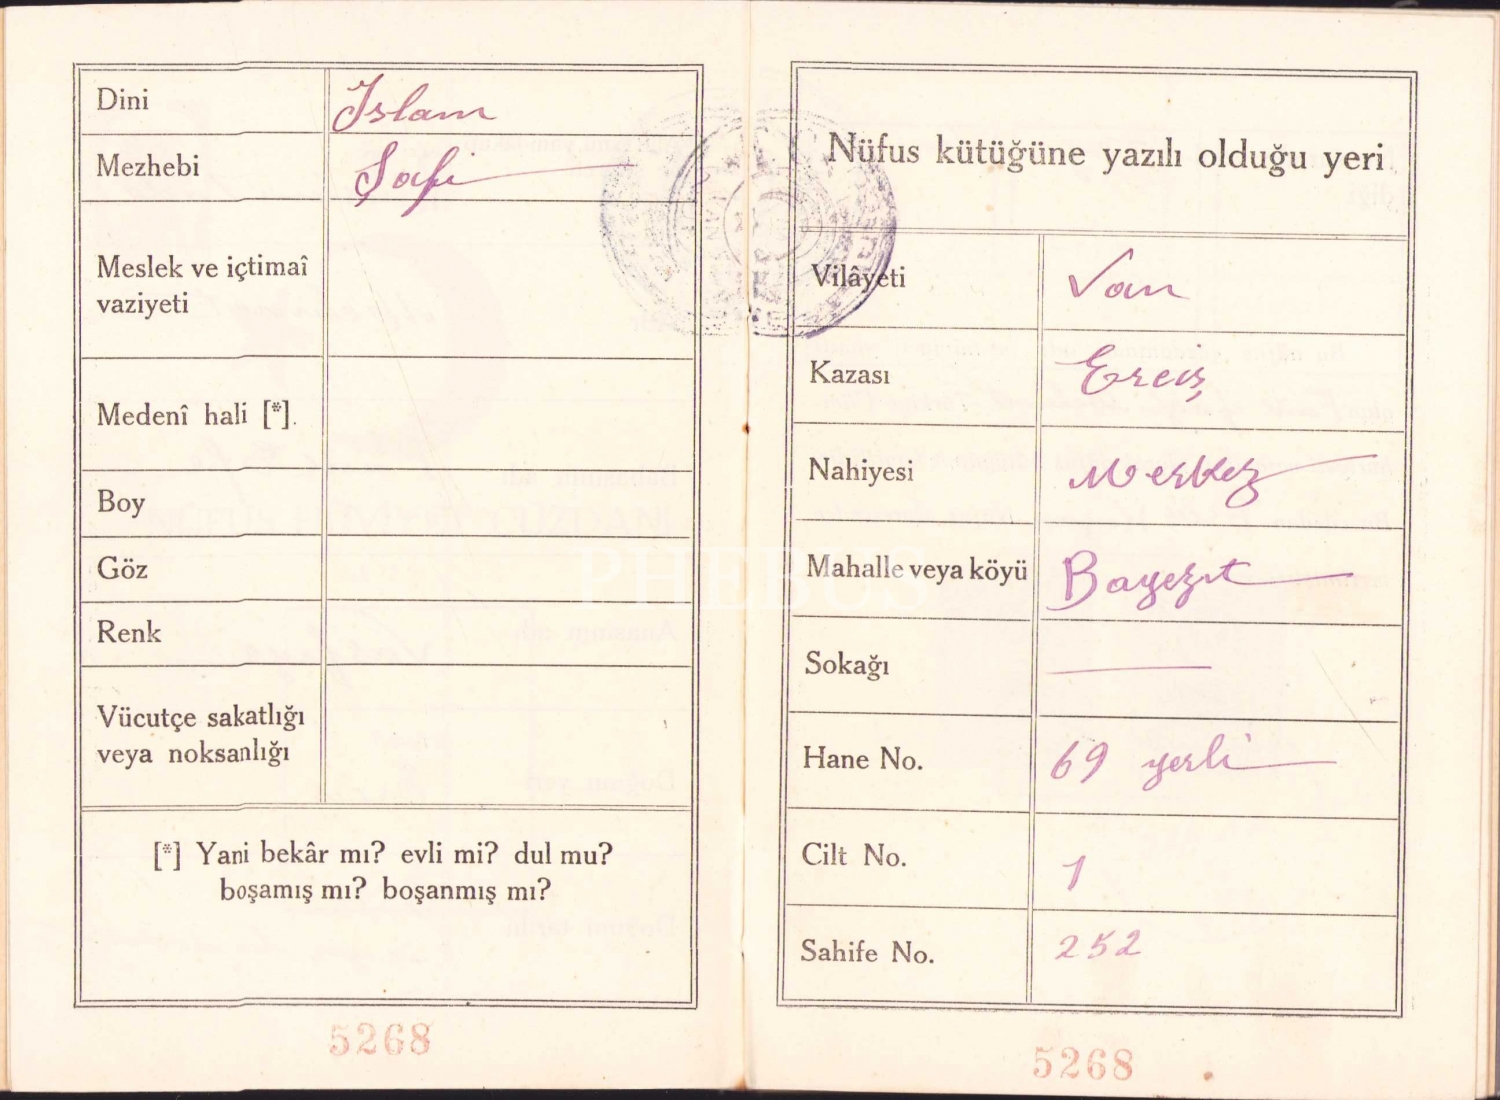 Dini İslam
Mezhebi Şafi
Meslek ve içtimaî
vaziyeti
Medenî hali [*].
Boy
Göz
Renk
Vücutçe sakatlığı
veya noksanlığı
[*] Yani bekâr mı? evli mi? dul mu?
boşamış mı? boşanmış mı?
5268
Nüfus kütüğüne yazılı olduğu yeri
Vilâyeti Van
Kazası Erciş
Nahiyesi Merkez
Mahalle veya köyü Bayezıt
Sokağı —
Hane No. 69 yerli
Cilt No. 1
Sahife No. 252
5268
PHEBUS